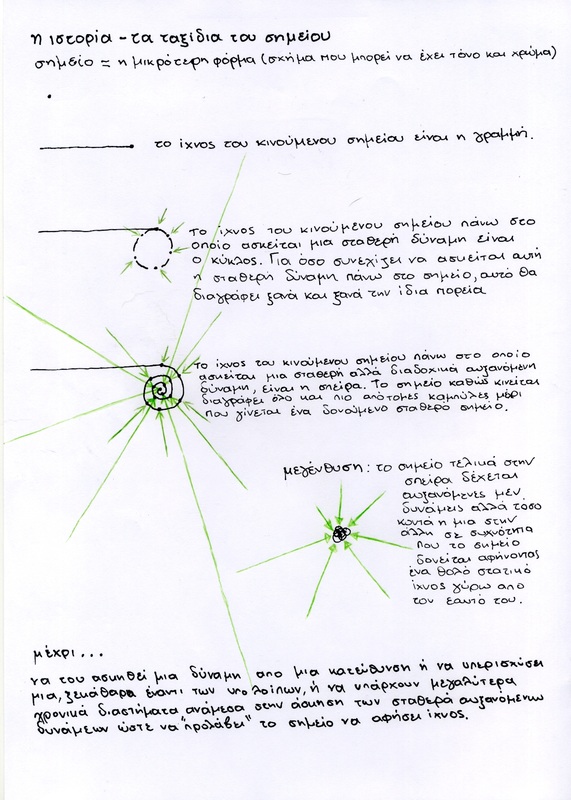 η ιστορία - τα ταξίδια του σημείου
σημείο = η μικρότερη φόρμα (σχήμα που μπορεί να έχει τόνο και χρώμα)
το ίχνος του κινούμενου σημείου είναι η γραμμή.
το ίχνος του κινούμενου σημείου πάνω στο
οποίο ασκείται μια σταθερή δύναμη είναι
ο κύκλος. Για όσο συνεχίζει να ασκείται αυτή
η σταθερή δύναμη πάνω στο σημείο, αυτό θα
διαγράφει ξανά και ξανά την ίδια πορεία
το ίχνος του κινούμενου σημείου πάνω στο οποίο
ασκείται μια σταθερή αλλά διαδοχικά αυξανόμενη
δύναμη, είναι η σπείρα. Το σημείο καθώς κινείται
διαγράφει όλο και πιο απότομες καμπύλες μέχρι
που γίνεται ένα δονούμενο σταθερό σημείο.
μεγένθυση: το σημείο τελικά στην
σπείρα δέχεται
αυξανόμενες μεν
δυνάμεις αλλά τόσο
κοντά η μια στην
άλλη σε συχνότητα
που το σημείο
δονείται αφήνοντας
ένα θολό στατικό
ίχνος γύρω απο
τον εαυτό του.
μέχρι...
να του ασκηθεί μια δύναμη απο μια κατεύθυνση ή να υπερισχύσει
μια, ξεκάθαρα έναντι των υπολοίπων, ή να υπάρχουν μεγαλύτερα
χρονικά διαστήματα ανάμεσα στην άσκηση των σταθερά αυξανόμενων
δυνάμεων ώστε να "προλάβει" το σημείο να αφήσει ίχνος.